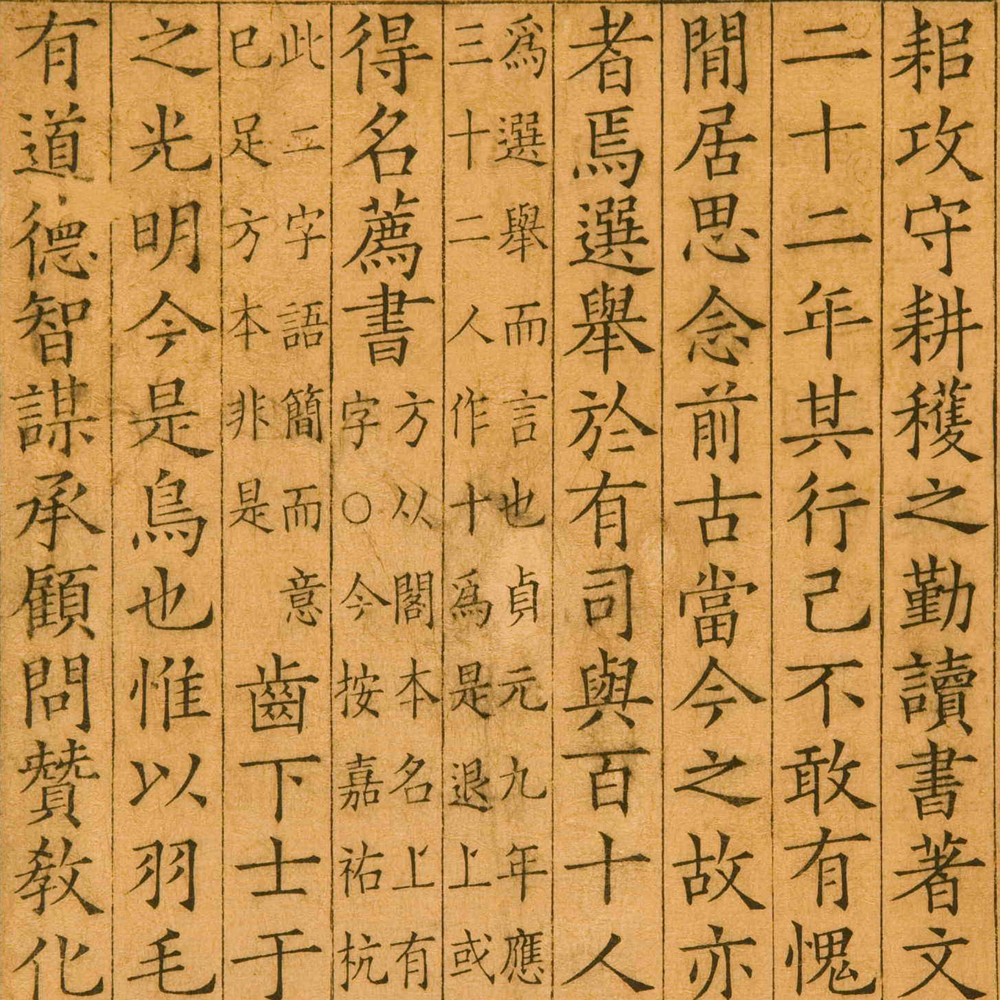 耜攻守耕穫之勤讀書著文
二十二年其行己不敢有愧
閒居思念前古當今之故亦
者焉選舉於有司與百十人
爲選舉而言也貞元九年應
三十二人作十爲是退上或
得名薦書
方从閣本名上有
字○今按嘉祐杭
此字語簡而意
巳足方本非是
齒下士于
之光明今是鳥也惟以羽毛
有道德智謀承顧問贊教化